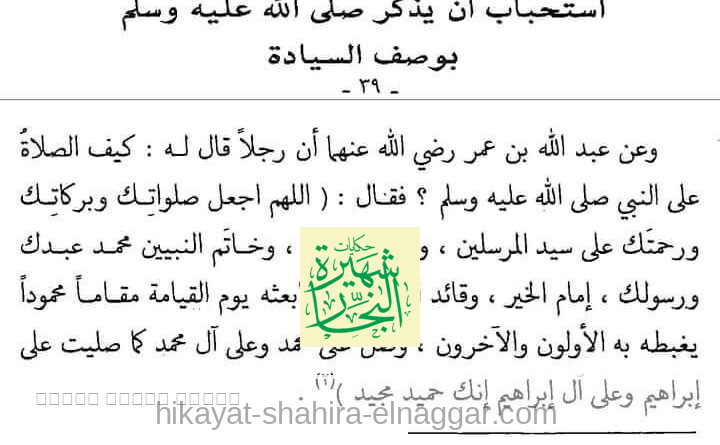 استحباب أن يذكر صلى الله عليه وسلم
بوصف السيادة
- ٣٩ -
وعن عبد الله بن عمر رضي الله عنهما أن رجلاً قال لـه : كيف الصلاةُ
على النبي صلى الله عليه وسلم ؟ فقـال : ( اللهم اجعل صلواتِـك وبركاتِـك
ورحمتَك على سيد المرسلين ، و ، وخـاتَم النبيين محمـد عبـدك
ورسولك ، إمام الخير ، وقائد ابعثه يوم القيامة مقـامـاً محموداً
يغبطه به الأولون والآخرون ، وصل على محمد وعلى آل محمد كما صليت على
إبراهيم وعلى آل إبراهيم إنك حميد مجيد )(١) .
حكايات
شهيرة
النجار
hikayat-shahira-elnaggar.com